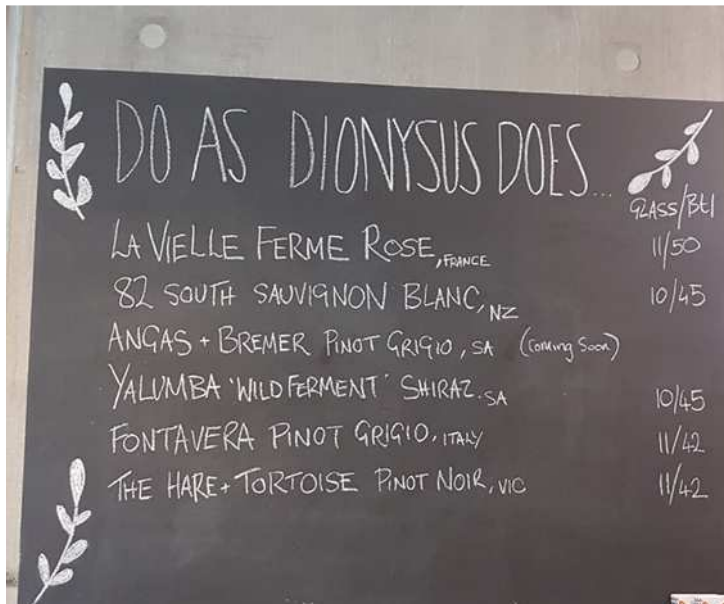 DO AS DIONYSUS DOES...
GLASS/Btl
LA VIELLE FERME ROSE, FRANCE 11/50
82 SOUTH SAUVIGNON BLANC, NZ 10/45
ANGAS + BREMER PINOT GRIGIO, SA (Coming Soon)
YALUMBA 'WILD FERMENT' SHIRAZ. SA 10/45
FONTAVERA PINOT GRIGIO, ITALY 11/42
THE HARE + TORTOISE PINOT NOIR, VIC 11/42